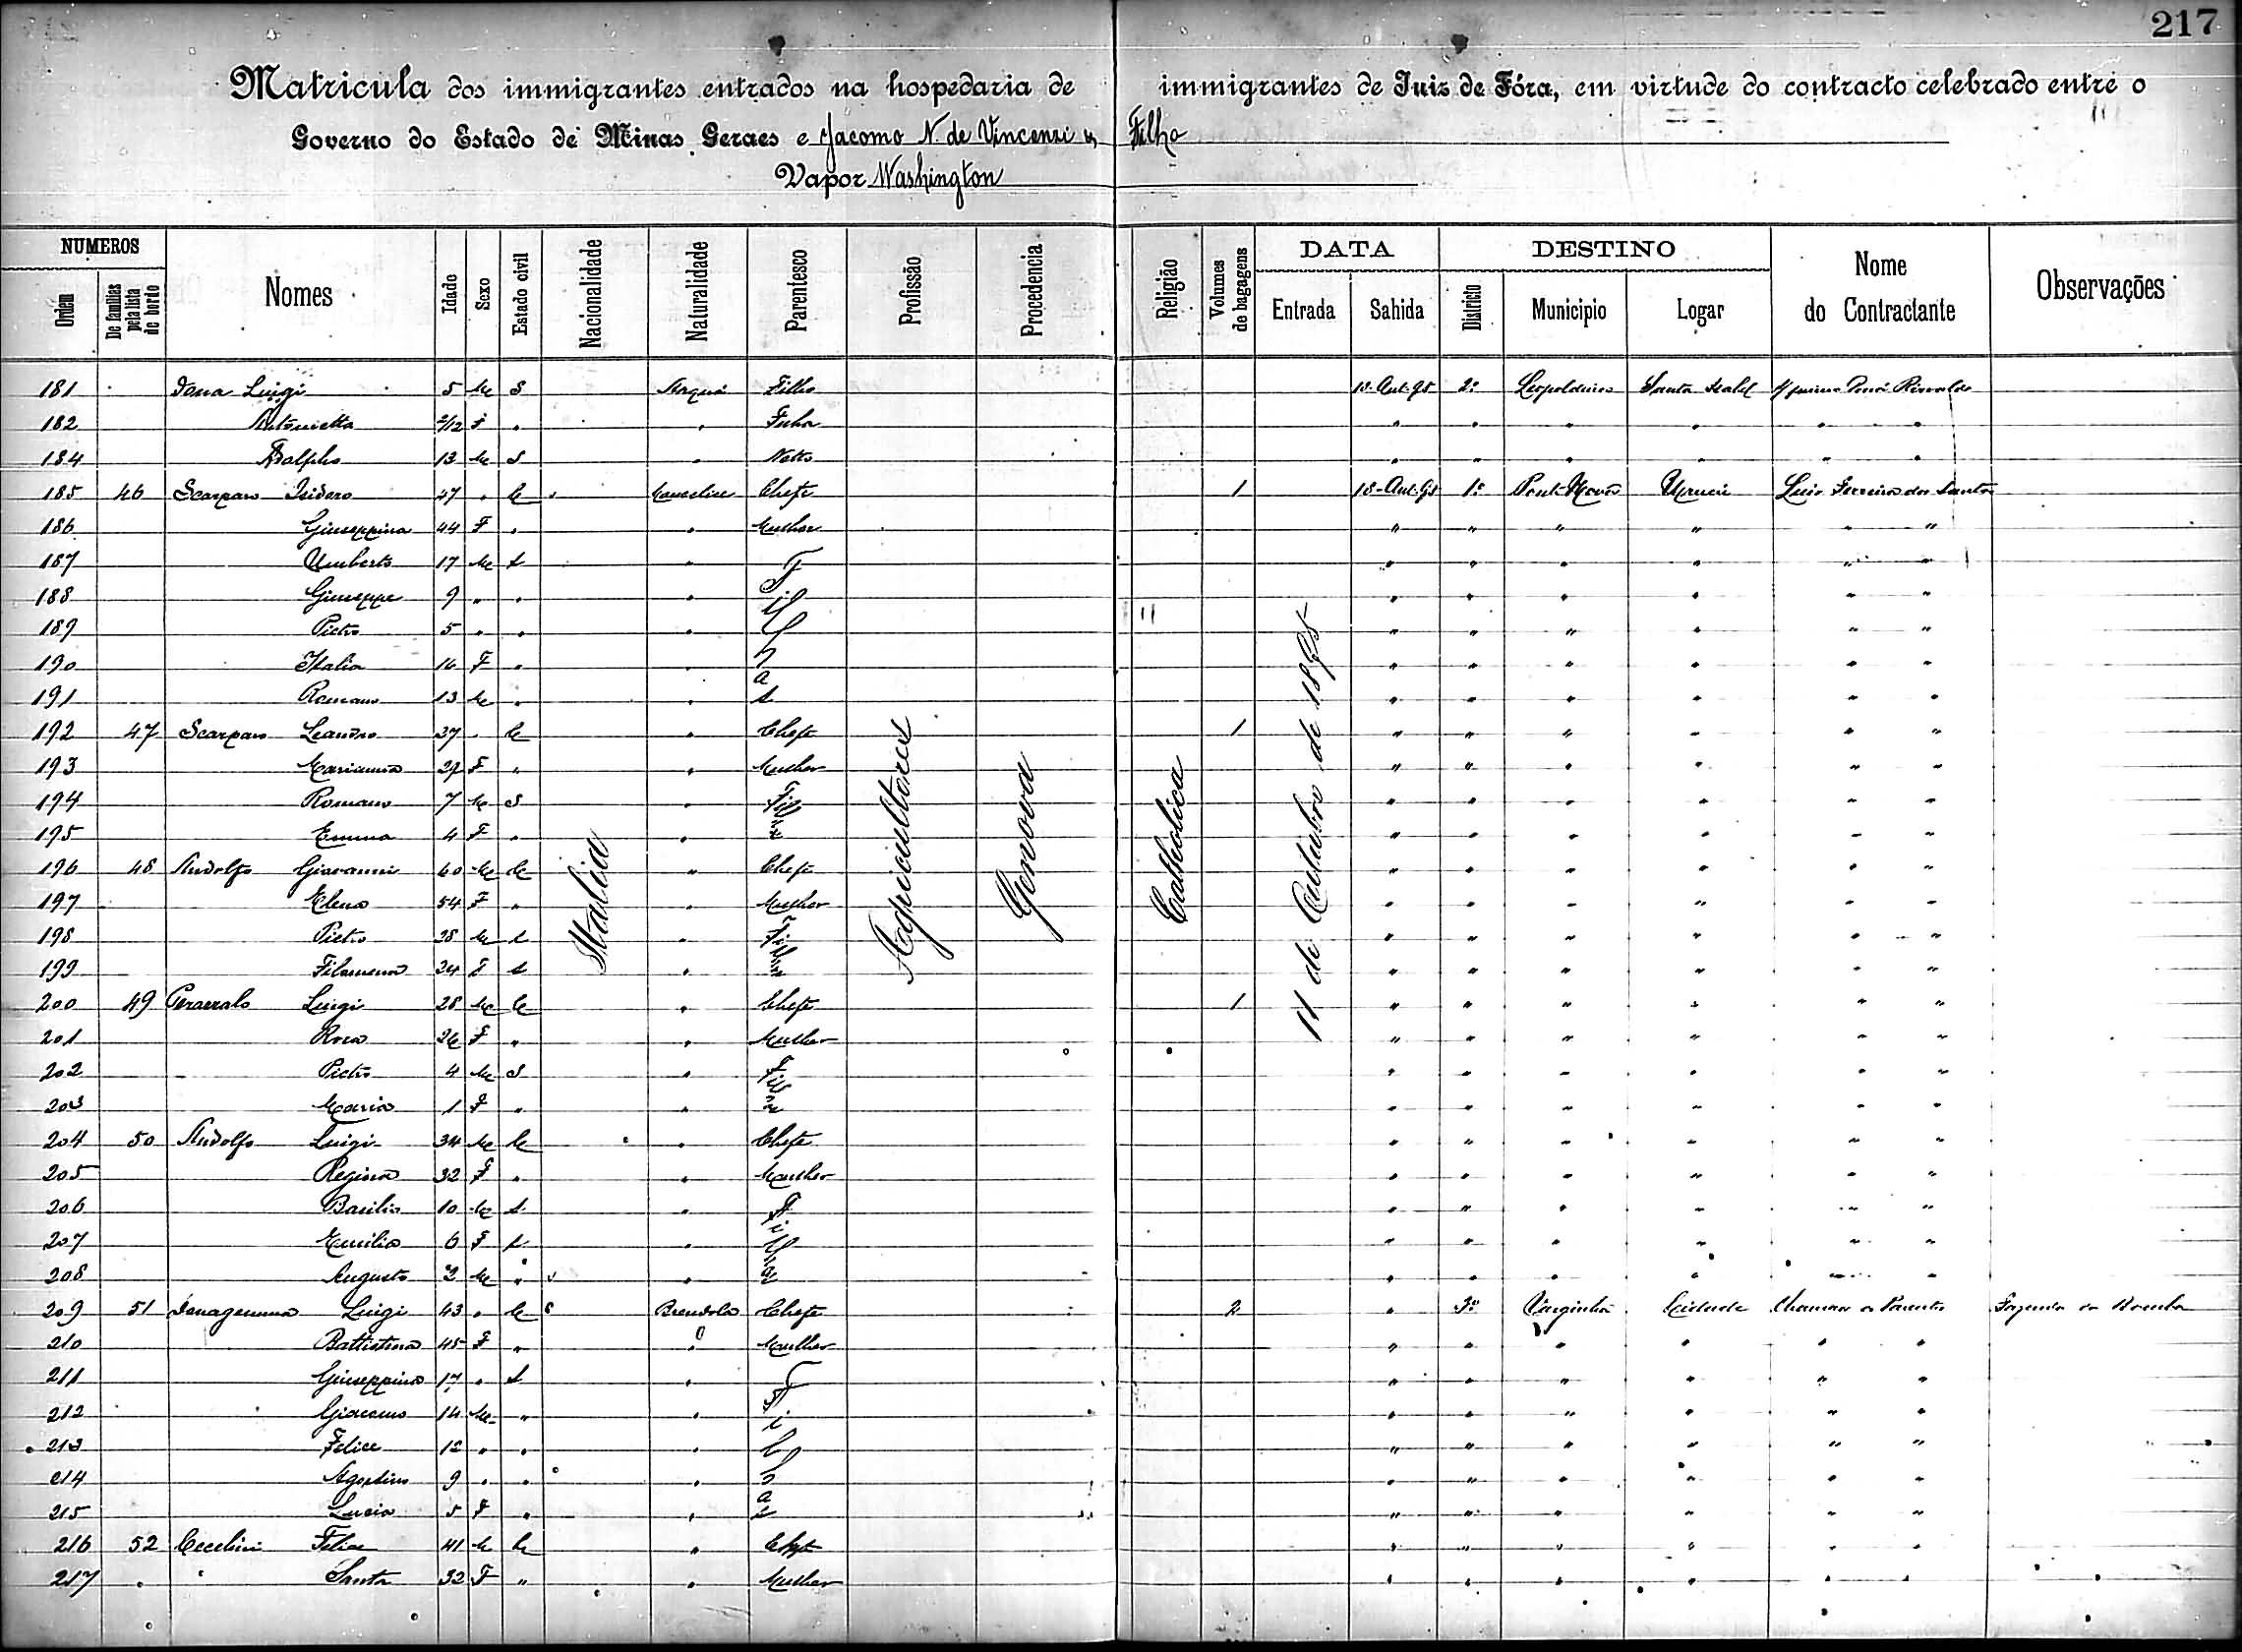 217
Matricula dos immigrantes entrados na hospedaria de immigrantes de Juiz de Fóra, em virtude do contracto celebrado entre o
Governo do Estado de Minas Geraes e Jacomo N. de Vincenzi & Filho
Vapor Washington
NUMEROS Nomes Idade Sexo Estado civil Nacionalidade Naturalidade Parentesco Profissão Procedencia Religião Volumes de bagagens DATA DESTINO Nome do Contractante Observações
Ordem De familias pela lista de bordo Entrada Sahida Districto Municipio Logar
Italia Agricultores Genova Catholica 11 de Outubro de 1895
181 Luigi 5 M S Filho 2º Leopoldina Santa Isabel
182 Antonietta 2/12 F " " " " " " " "
184 Adolpho 13 M S " Netto " " " " " "
185 46 Scarparo Isidoro 47 " C Monselice Chefe 1 18-Out-95 1º Ponte Nova Luiz Ferreira dos Santos
186 Giuseppina 44 F " " Mulher " " " " " "
187 Umberto 17 M S " Filhos " " " " " "
188 Giuseppe 9 " " " " " " " " "
189 Pietro 5 " " " " " " " " "
190 Italia 16 F " " " " " " " "
191 Romano 13 M " " " " " " " "
192 47 Scarparo Leandro 37 " C " Chefe 1 " " " " " "
193 Marianna 27 F " " Mulher " " " " " "
194 Romano 7 M S " Filhos " " " " " "
195 Emma 4 F " " " " " " " "
196 48 Andolfo Giovanni 60 M C " Chefe " " " " " "
197 Elena 54 F " " Mulher " " " " " "
198 Pietro 28 M S " Filhos " " " " " "
199 Filomena 24 F S " " " " " " "
200 49 Luigi 28 M C " Chefe 1 " " " " " "
201 Rosa 26 F " " Mulher " " " " " "
202 Pietro 4 M S " Filhos " " " " " "
203 Maria 1 F " " " " " " " "
204 50 Andolfo Luigi 34 M C " Chefe " " " " " "
205 Regina 32 F " " Mulher " " " " " "
206 Basilio 10 M S " Filhos " " " " " "
207 Emilia 6 F S " " " " " " "
208 Augusto 2 M " " " " " " " "
209 51 Luigi 43 " C Brendola Chefe 2 " 3º Varginha Cidade Fazenda da
210 Battistina 45 F " " Mulher " " " " " "
211 Giuseppina 17 " S " Filhos " " " " " "
212 Giacomo 14 M " " " " " " " "
213 Felice 12 " " " " " " " " "
214 Agostino 9 " " " " " " " " "
215 Lucia 5 F " " " " " " " "
216 52 Cecchini Felice 41 M C " Chefe " " " " " "
217 " " Santa 32 F " " Mulher " " " " " "